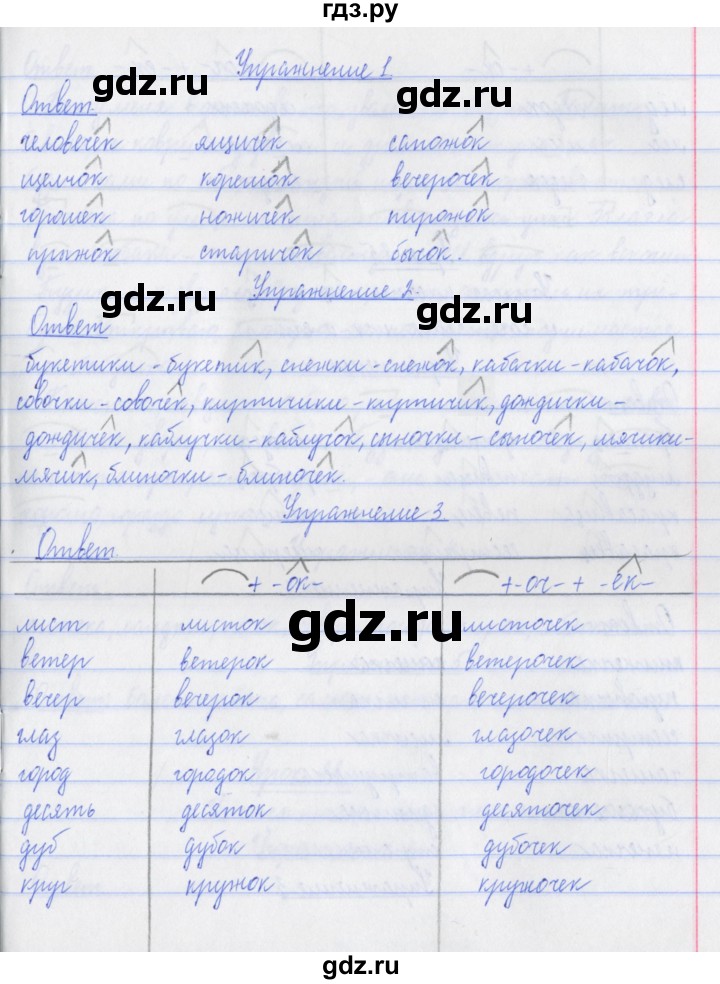 гдз.ру
Упражнение 1
gdz.ru
gdz.ru
Ответ.
человечек ящичек сапожок
щелчок корешок вечерочек
горошек ножичек пирожок
пряжок старичок бычок.
gdz.ru
Упражнение 2.
gdz.ru
Ответ
букетики - букетик, снежки - снежок, кабачки - кабачок,
совочки - совочек, кирпичики - кирпичик, дождички -
дождичек, каблучки - каблучок, сыночки - сыночек, мячики -
мячик, блиночки - блиночек.
Упражнение 3
Ответ.
+ -ок- + -оч- + -ек-
gdz.ru
лист листок листочек
ветер ветерок ветерочек
вечер вечерок вечерочек
глаз глазок глазочек
город городок городочек
десять десяток десяточек
дуб дубок дубочек
круг кружок кружочек
gdz.ru